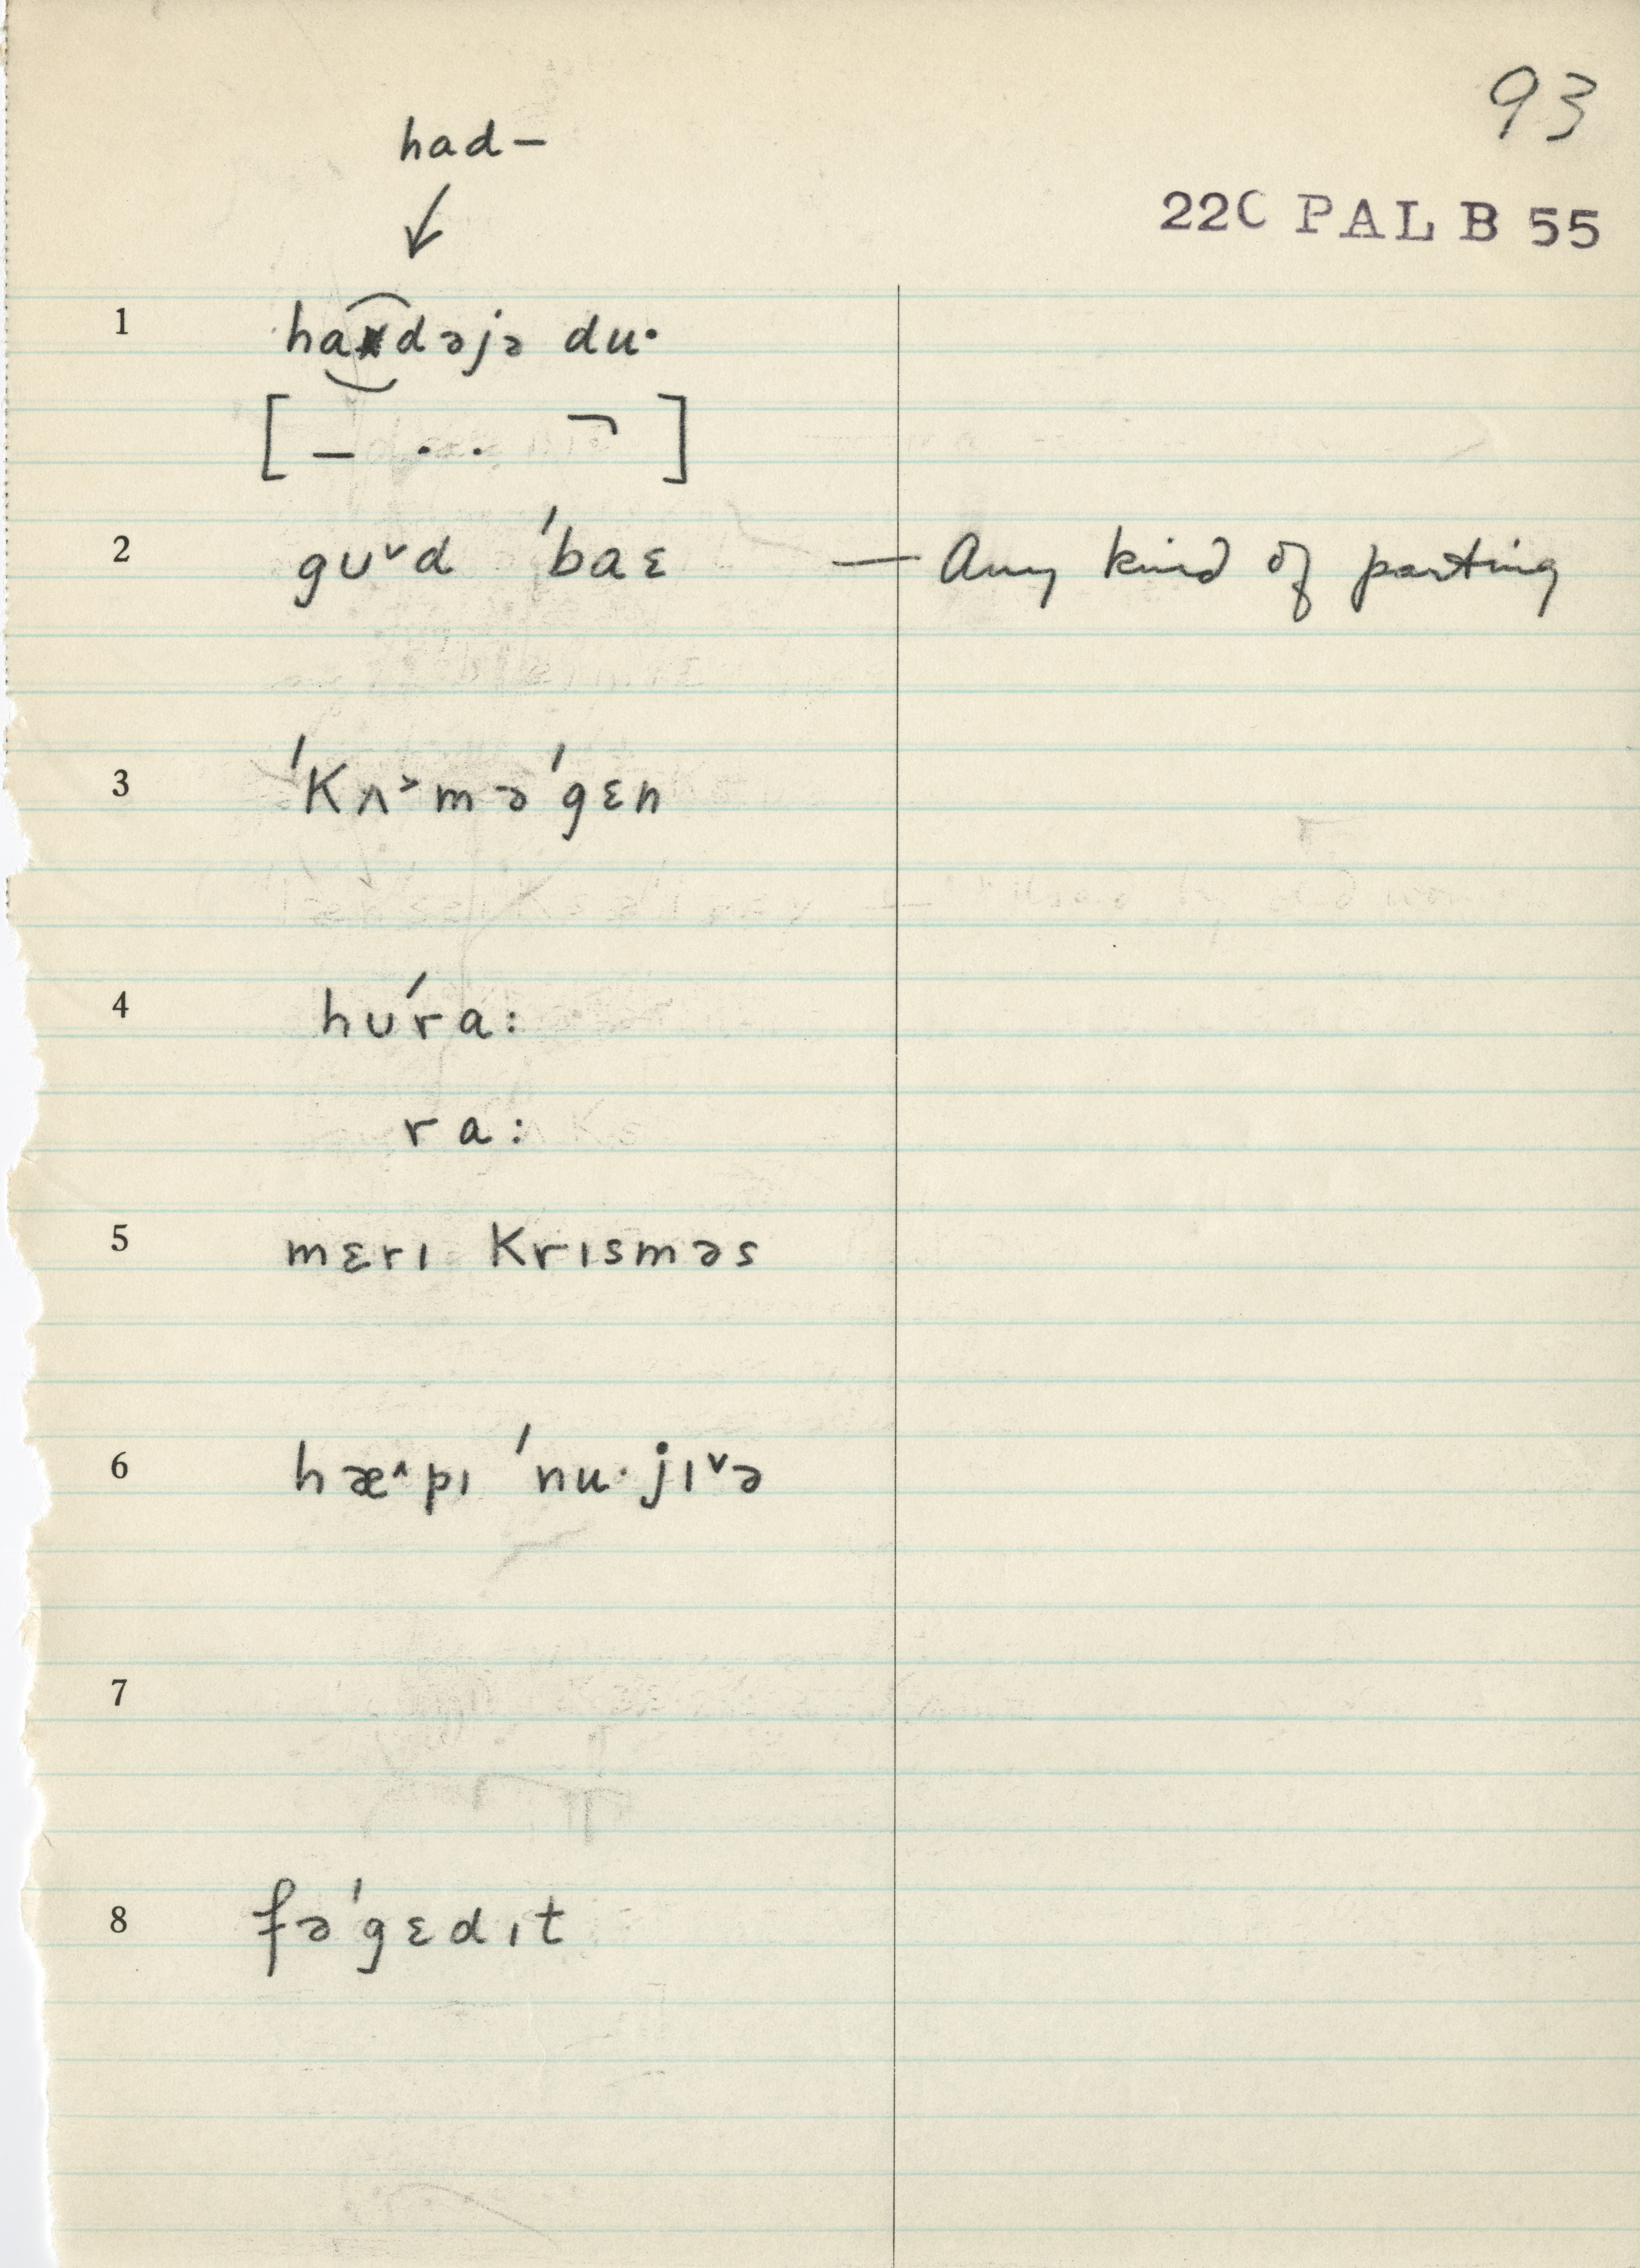 93
had–
↙
22C PAL B 55
1 hadəjə du·
[ – . . ¬ ]
2 gᴜ˅d ˈbaɛ — Any kind of parting
3 ˈKʌ˃məˈgɛn
4 hᴜˊra:
ra:
5 mɛrɪ Krɪsməs
6 hæ˄pɪ ˈnu·jɪ˅ə
7
8 fəˈgɛdɪt